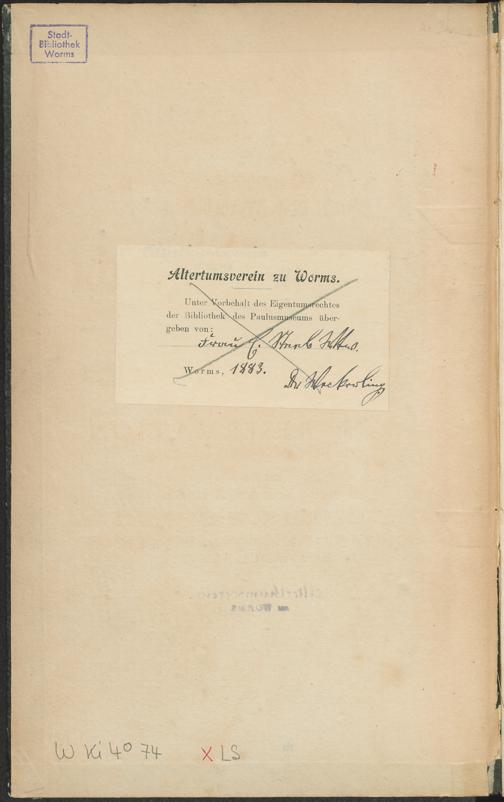 Stadt-
Bibliothek
Worms
Altertumsverein zu Worms.
Unter Vorbehalt des Eigentumsrechtes
der Bibliothek des Paulusmuseums über-
geben von:
Frau C. Wtw.
Worms, 1883.
Dr Weckerling
W Ki 4° 74 X LS